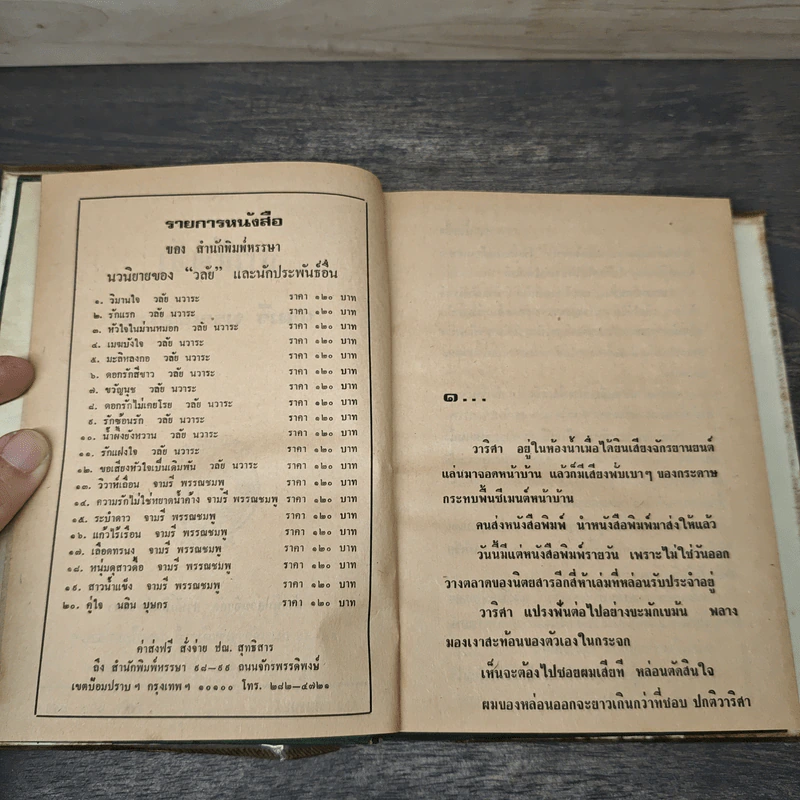 รายการหนังสือ
ของ สำนักพิมพ์หรรษา
นวนิยายของ “วลัย” และนักประพันธ์อื่น
๑. วิมานใจ วลัย นวาระ ราคา ๑๒๐ บาท
๒. รักแรก วลัย นวาระ ราคา ๑๒๐ บาท
๓. หัวใจในม่านหมอก วลัย นวาระ ราคา ๑๒๐ บาท
๔. เมฆบังใจ วลัย นวาระ ราคา ๑๒๐ บาท
๕. มะลิหลงกอ วลัย นวาระ ราคา ๑๒๐ บาท
๖. ดอกรักสีขาว วลัย นวาระ ราคา ๑๒๐ บาท
๗. ขวัญนุช วลัย นวาระ ราคา ๑๒๐ บาท
๘. ดอกรักไม่เคยโรย วลัย นวาระ ราคา ๑๒๐ บาท
๙. รักซ้อนรัก วลัย นวาระ ราคา ๑๒๐ บาท
๑๐. น้ำผึ้งยังหวาน วลัย นวาระ ราคา ๑๒๐ บาท
๑๑. รักแฝงใจ วลัย นวาระ ราคา ๑๒๐ บาท
๑๒. ขอเสียงหัวใจเป็นเดิมพัน วลัย นวาระ ราคา ๑๒๐ บาท
๑๓. วิวาห์เถื่อน จามรี พรรณชมพู ราคา ๑๒๐ บาท
๑๔. ความรักไม่ใช่หยาดน้ำค้าง จามรี พรรณชมพู ราคา ๑๒๐ บาท
๑๕. ระบำดาว จามรี พรรณชมพู ราคา ๑๒๐ บาท
๑๖. แก้วไร้เรือน จามรี พรรณชมพู ราคา ๑๒๐ บาท
๑๗. เลือดทรนง จามรี พรรณชมพู ราคา ๑๒๐ บาท
๑๘. หนุ่มดุสาวดื้อ จามรี พรรณชมพู ราคา ๑๒๐ บาท
๑๙. สาวน้ำแข็ง จามรี พรรณชมพู ราคา ๑๒๐ บาท
๒๐. คู่ใจ นลิน บุษกร ราคา ๑๒๐ บาท
ค่าส่งฟรี สั่งจ่าย ปณ. สุทธิสาร
ถึง สำนักพิมพ์หรรษา ๙๘-๙๙ ถนนจักรพรรดิพงษ์
เขตป้อมปราบฯ กรุงเทพฯ ๑๐๑๐๐ โทร. ๒๘๒-๔๗๒๑
๑...
วาริศา อยู่ในห้องน้ำเมื่อได้ยินเสียงจักรยานยนต์
แล่นมาจอดหน้าบ้าน แล้วก็มีเสียงพั่บเบาๆ ของกระดาษ
กระทบพื้นซีเมนต์หน้าบ้าน
คนส่งหนังสือพิมพ์ นำหนังสือพิมพ์มาส่งให้แล้ว
วันนี้มีแต่หนังสือพิมพ์รายวัน เพราะไม่ใช่วันออก
วางตลาดของนิตยสารอีกสี่ห้าเล่มที่หล่อนรับประจำอยู่
วาริศา แปรงฟันต่อไปอย่างขะมักเขมัน พลาง
มองเงาสะท้อนของตัวเองในกระจก
เห็นจะต้องไปซอยผมเสียที หล่อนตัดสินใจ
ผมของหล่อนออกจะยาวเกินกว่าที่ชอบ ปกติวาริศา